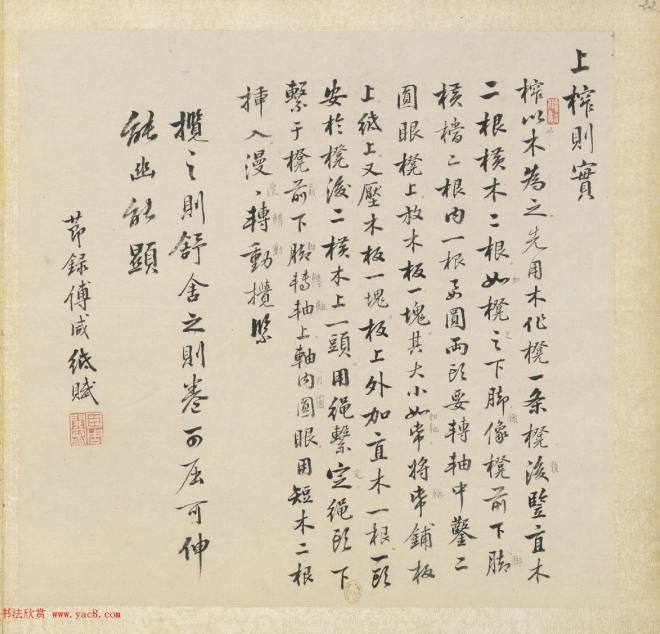 上榨則實
榨以木為之先用木作櫈一条櫈後豎直木
二根横木二根如櫈之下脚像櫈前下脚
横檔二根内一根要圓兩頭要轉軸中鑿二
圓眼櫈上放木板一塊其大小如帋將帋鋪板
上紙上又壓木板一塊板上外加直木一根一頭
安於櫈後二横木上一頭用繩繫定繩頭下
繫于櫈前下脚轉軸上軸内圓眼用短木二根
揷入漫〻轉動攬𦂳
攬之則舒舍之則卷可屈可伸
能幽能顯
節録傅咸紙賦
22
书法欣赏 www.yac8.com